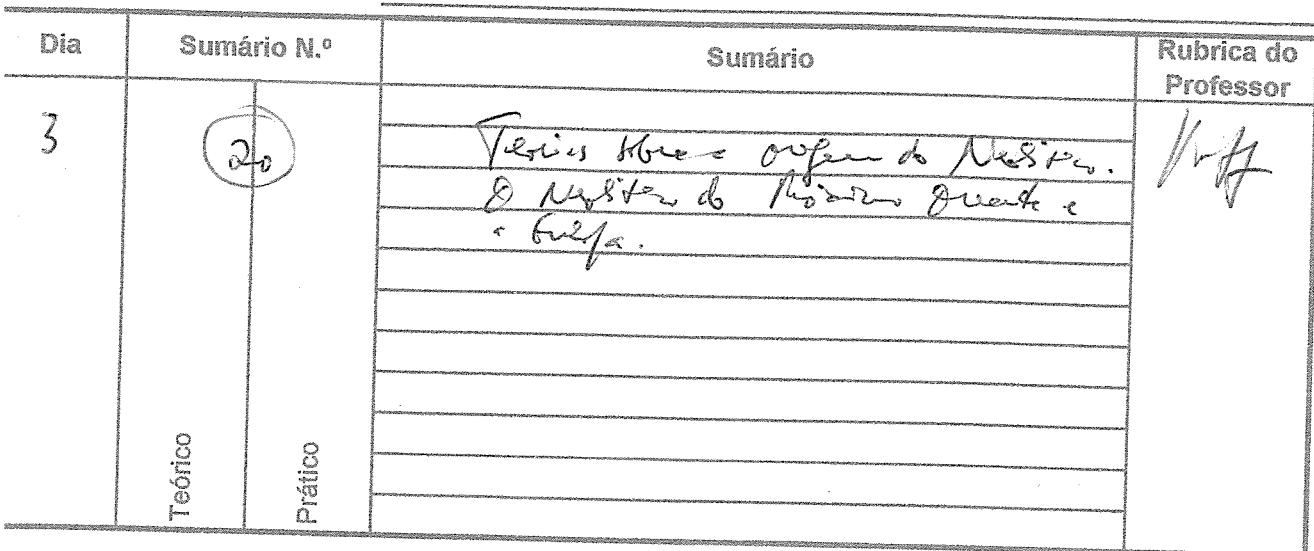 Dia Sumário N.º Sumário Rubrica do Professor
3 20 Teorias sobre a origem do Neolítico.
O Neolítico do Próximo Oriente e
a Europa.
Teórico Prático